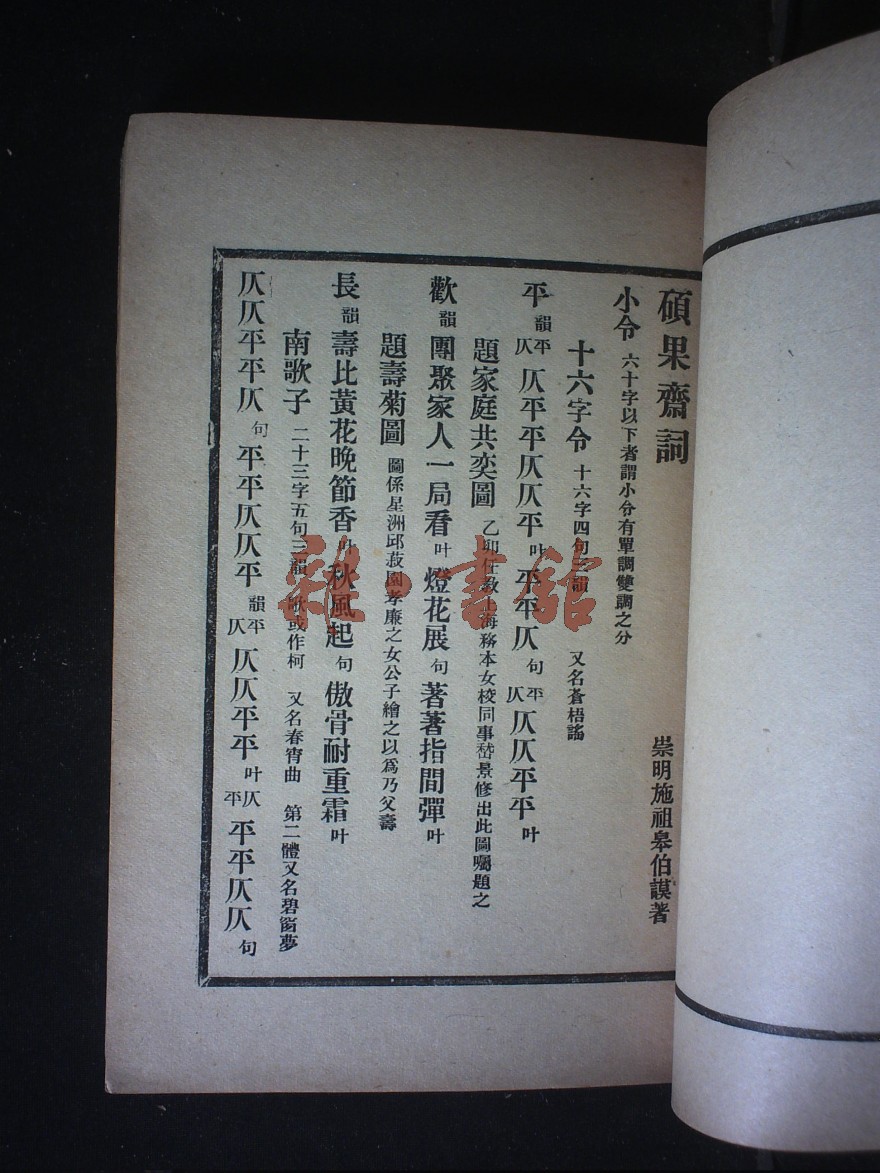 碩果齋詞
崇明施祖皋伯謨著
小令 六十字以下者謂小令有單調雙調之分
十六字令 十六字四句三韻 又名蒼梧謠
平 韻 平仄 仄平平仄仄平 叶 平平仄 句 平仄 仄仄平平 叶
題家庭共奕圖 乙卯任教上海務本女校同事嵆景修出此圖囑題之
歡 韻 團聚家人一局看 叶 燈花展 句 著著指間彈 叶
題壽菊圖 圖係星洲邱菽園孝廉之女公子繪之以爲乃父壽
長 韻 壽比黃花晚節香 叶 秋風起 句 傲骨耐重霜 叶
南歌子 二十三字五句三韻 歌或作柯 又名春宵曲 第二體又名碧窗夢
仄仄平平仄 句 平平仄仄平 韻 平仄 仄仄平平 叶 仄平 平平仄仄 句
雜·書館